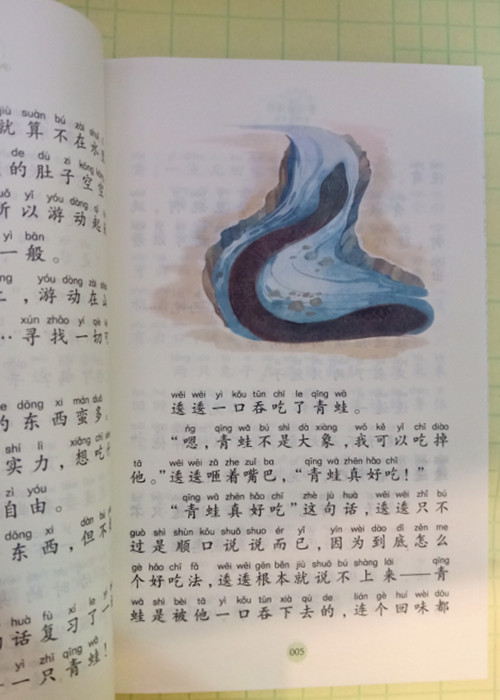 jiù suàn bú zài
就算不在水
de dù zi kōng kōng
的肚子空空
yǐ yóu dòng qǐ
所以游动起
yì bān
一般。
yóu dòng zài
，游动在
xún zhǎo yí qiè
…寻找一切可
dōng xi mán duō
的东西蛮多
shí lì xiǎng chī
实力，想吃
zì yóu
自由。
dōng xi dàn bú
东西，但不
huà fù xí le
话复习了一
yì zhī qīng wā
一只青蛙！
wēi wēi yì kǒu tūn chī le qīng wā
逶逶一口吞吃了青蛙。
ńg qīng wā bú shì dà xiàng wǒ kě yǐ chī diào
“嗯，青蛙不是大象，我可以吃掉
tā wēi wēi zā zhe zuǐ ba qīng wā zhēn hǎo chī
他。”逶逶咂着嘴巴，“青蛙真好吃！”
qīng wā zhēn hǎo chī zhè jù huà wēi wēi zhǐ bú
“青蛙真好吃”这句话，逶逶只不
guò shì shùn kǒu shuō shuo ér yǐ yīn wèi dào dǐ zěn me
过是顺口说说而已，因为到底怎么
gè hǎo chī fǎ wēi wēi gēn běn jiù shuō bú shàng lái qīng
个好吃法，逶逶根本就说不上来——青
wā shì bèi tā yì kǒu tūn xià qù de lián gè huí wèi dōu
蛙是被他一口吞下去的，连个回味都
005